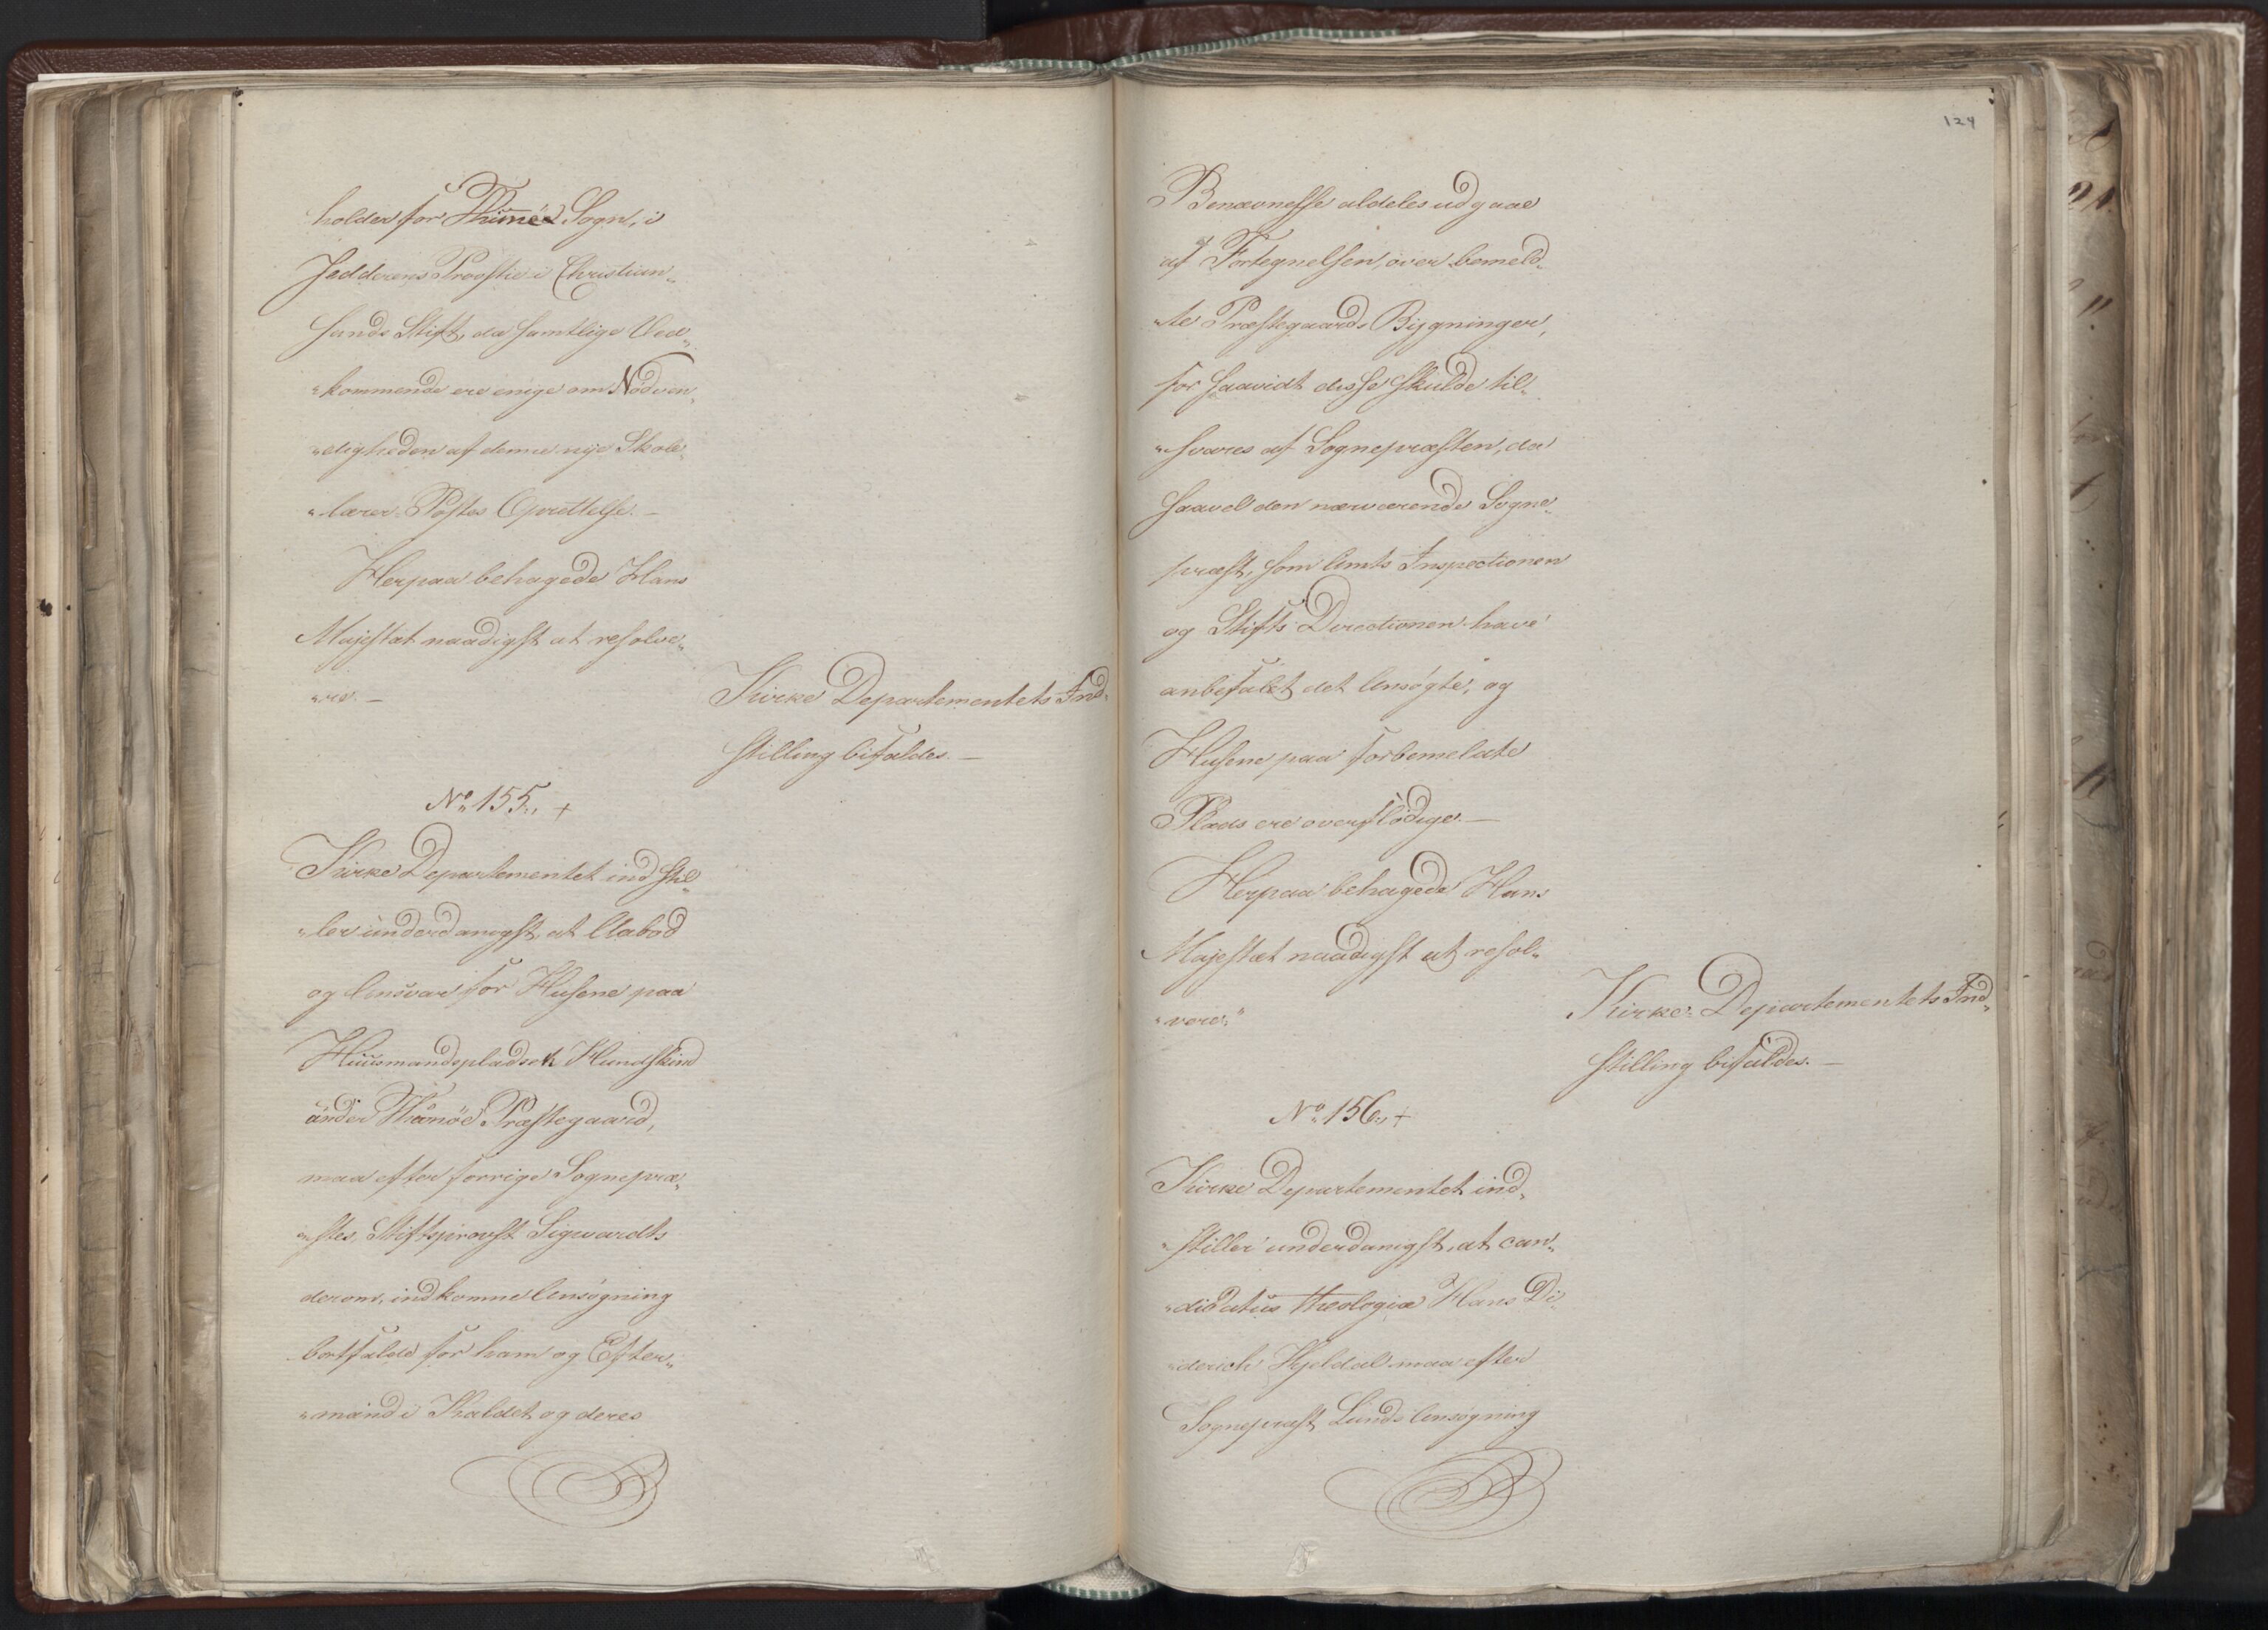 holder for Thimés Sogn, i
Jedderens Provstie i Christian„
sands Stift, da samtlige Ved„
„kommende ere enige om Nödven„
„digheden af denne nye Skole„
„lærer-Postes Oprettelse. —
Herpaa behagede Hans
Majestæt naadigst at resolve„
„re. —
Kirke Departementets Ind„
stilling bifaldes. —
No 155. +
Kirke Departementet indstil„
„ler underdanigst, at Aabod
og Ansvar for Husene paa
Huusmandspladsen Hundskind
under Præstegaard,
maa efter forrige Sognepræ„
„stes, Stiftsprovst Sigvardts
derom, indkomne Ansögning
bortfalde for ham og Efter„
„mænd i Kaldet og deres
124
Benævnelse aldeles udgaae
af Fortegnelsen, over bemeld„
„te Præstegaards Bygninger,
for saavidt disse skulde til„
„svares af Sognepræsten, da
saavel den nærværende Sogne„
præst, som Amts Inspectionen
og Stifts Directionen have
anbefalet det Ansögte, og
Husene paa forbemeldte
Plads ere overflödige. —
Herpaa behagede Hans
Majestæt naadigst at resol„
„vere:"
Kirke-Departementets Ind„
stilling bifaldes. —
No 156. +
Kirke Departementet ind„
„stiller underdanigst, at can„
„didatus theologiæ Hans Di„
„derich Kjeldal maa efter
Sognepræst Lunds Ansögning